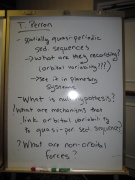 T. Perron
- spatially quasi-periodic
sed sequences
→ what are they recording?
(orbital variability???)
→ see it in planetary
systems
- What is null hypothesis?
- What are mechanisms that
link orbital variability
to quasi-per sed sequence?
- What are non-orbital
forces?